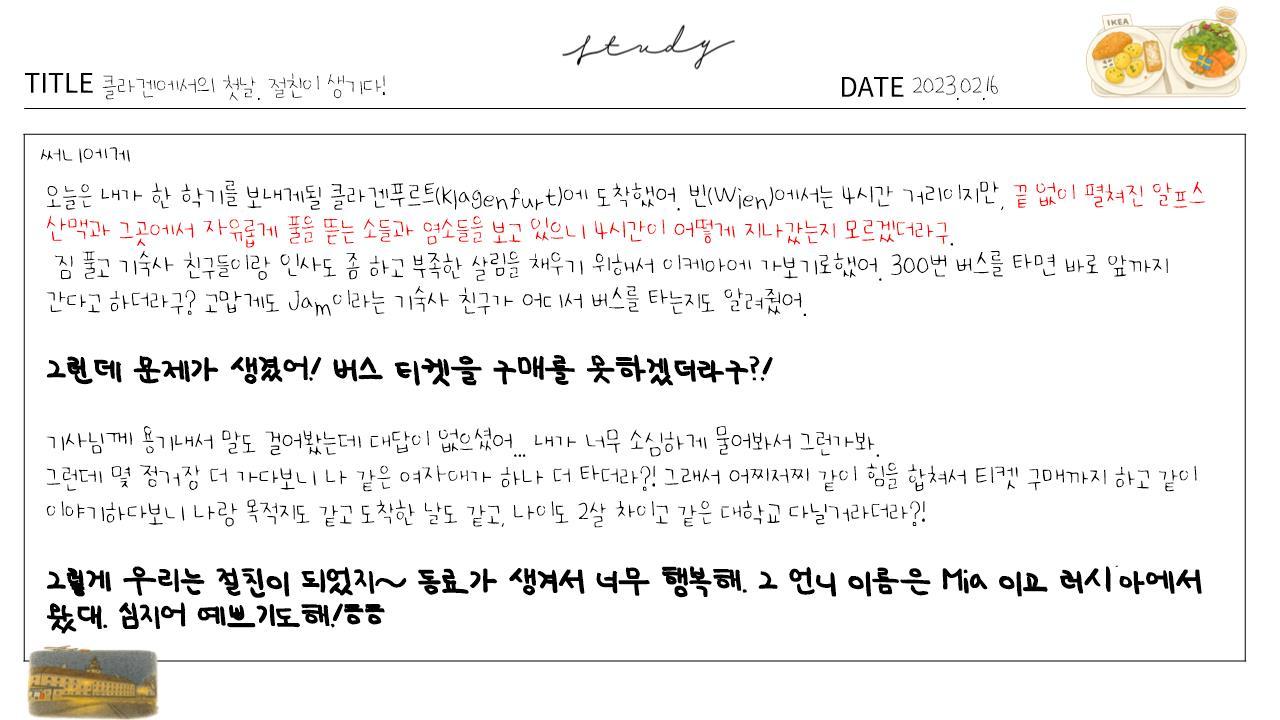 study
IKEA
TITLE 클라겐에서의 첫날, 절친이 생기다!
DATE 2023.02.16
써니에게
오늘은 내가 한 학기를 보내게될 클라겐푸르트(Klagenfurt)에 도착했어. 빈(Wien)에서는 4시간 거리이지만, 끝 없이 펼쳐진 알프스
산맥과 그곳에서 자유롭게 풀을 뜯는 소들과 염소들을 보고 있으니 4시간이 어떻게 지나갔는지 모르겠더라구.
짐 풀고 기숙사 친구들이랑 인사도 좀 하고 부족한 살림을 채우기 위해서 이케아에 가보기로했어. 300번 버스를 타면 바로 앞까지
간다고 하더라구? 고맙게도 Jam이라는 기숙사 친구가 어디서 버스를 타는지도 알려줬어.
그런데 문제가 생겼어! 버스 티켓을 구매를 못하겠더라구?!
기사님께 용기내서 말도 걸어봤는데 대답이 없으셨어... 내가 너무 소심하게 물어봐서 그런가봐.
그런데 몇 정거장 더 가다보니 나 같은 여자애가 하나 더 타더라?! 그래서 어찌저찌 같이 힘을 합쳐서 티켓 구매까지 하고 같이
이야기하다보니 나랑 목적지도 같고 도착한 날도 같고, 나이도 2살 차이고 같은 대학교 다닐거라더라?!
그렇게 우리는 절친이 되었지~ 동료가 생겨서 너무 행복해. 그 언니 이름은 Mia 이고 러시아에서
왔대. 심지어 예쁘기도해!ㅎㅎ